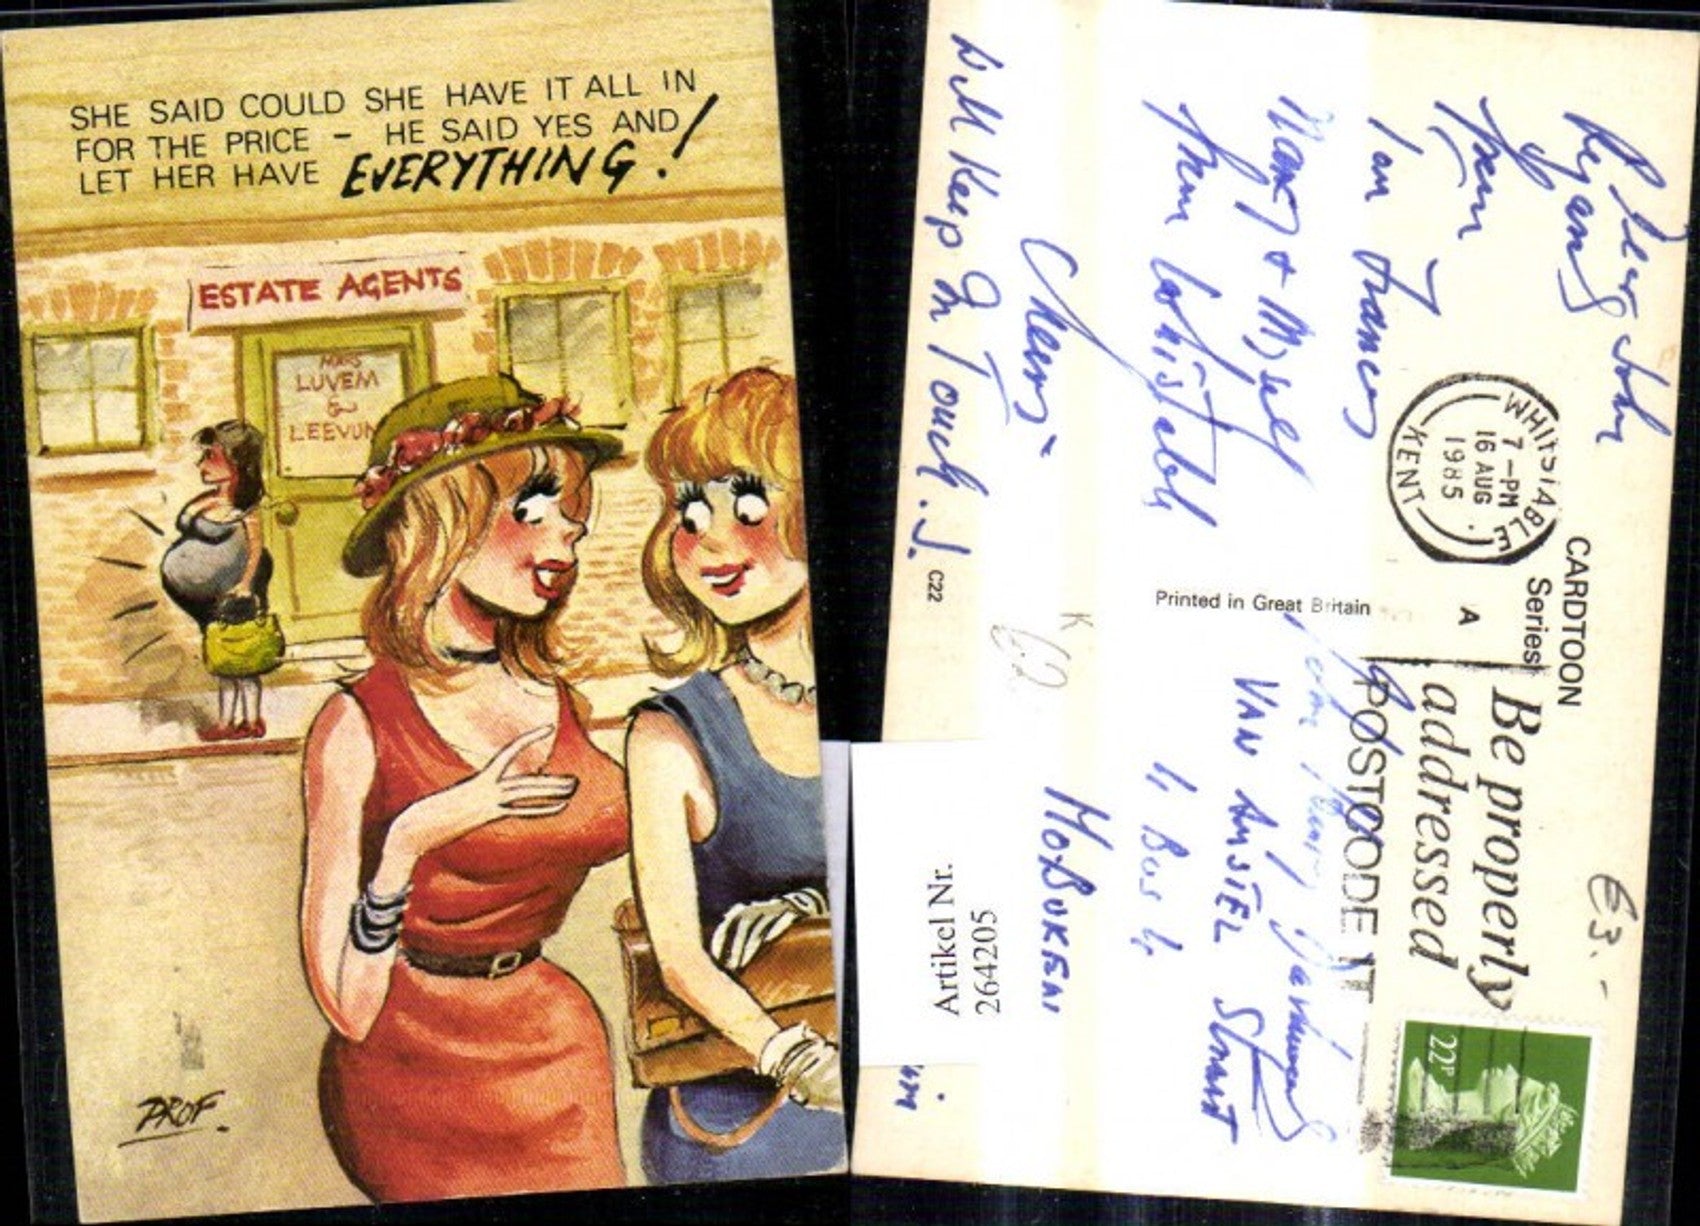 SHE SAID COULD SHE HAVE IT ALL IN
FOR THE PRICE - HE SAID YES AND
LET HER HAVE EVERYTHING!
ESTATE AGENTS
LUVEM
&
LEEVUM
PROF.
Dear John
Regards
from
Ian Frances
Mary & Myself
from Whistable
Cheers
Will Keep In Touch. J.
WHITSTABLE
7-PM
16 AUG
1985
KENT
A
CARDTOON
Series
Be properly
addressed
POSTCODE IT
Printed in Great Britain
C22
VAN AMSTEL STRAAT
4 Bus 4
HOBOKEN
22P
€3.-
K
62
Artikel Nr.
264205